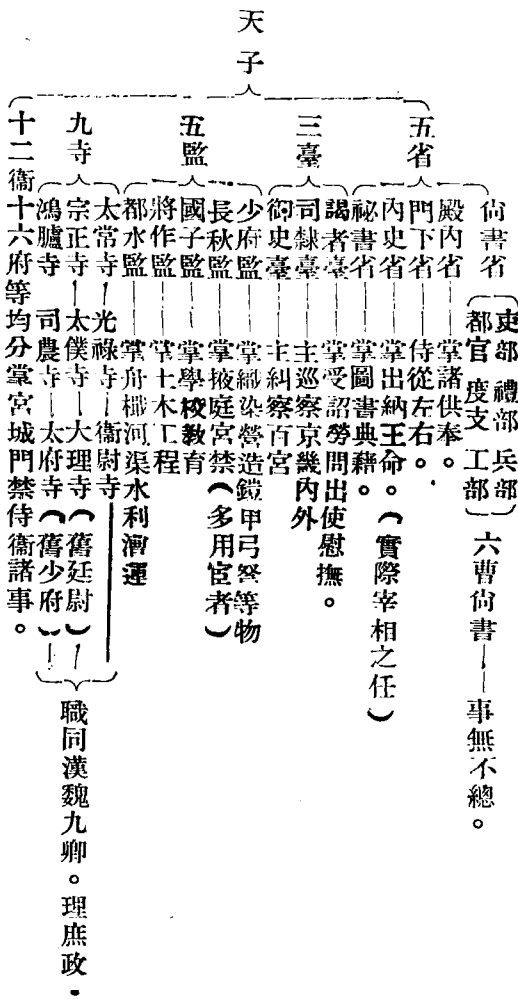 天子
五省
尙書省
吏部 禮部 兵部
都官 度支 工部
六曹尙書——事無不總。
殿內省——掌諸供奉。
門下省——侍從左右。
內史省——掌出納王命。(實際宰相之任)
祕書省——掌圖書典籍。
三臺
謁者臺——掌受詔勞問出使慰撫。
司隸臺——主巡察京畿內外
御史臺——主糾察百官
五監
少府監——掌織染營造鎧甲弓弩等物
長秋監——掌掖庭宮禁(多用宦者)
國子監——掌學校敎育
將作監——掌土木工程
都水監——掌舟檝河渠水利漕運
九寺
太常寺—光祿寺—衞尉寺
宗正寺—太僕寺—大理寺(舊廷尉)
鴻臚寺 司農寺—太府寺(舊少府)
職同漢魏九卿。理庶政.
十二衞十六府等均分掌宮城門禁侍衞諸事。